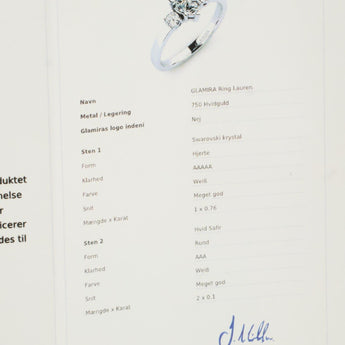 Navn GLAMIRA Ring Lauren
Metal / Legering 750 Hvidguld
Glamiras logo indeni Nej
Sten 1 Swarovski krystal
Form Hjerte
Klarhed AAAAA
Farve Weiß
Snit Meget god
Mængde x Karat 1 x 0.76
Sten 2 Hvid Safir
Form Rund
Klarhed AAA
Farve Weiß
Snit Meget god
Mængde x Karat 2 x 0.1
duktet
nelse
r
icerer
des til